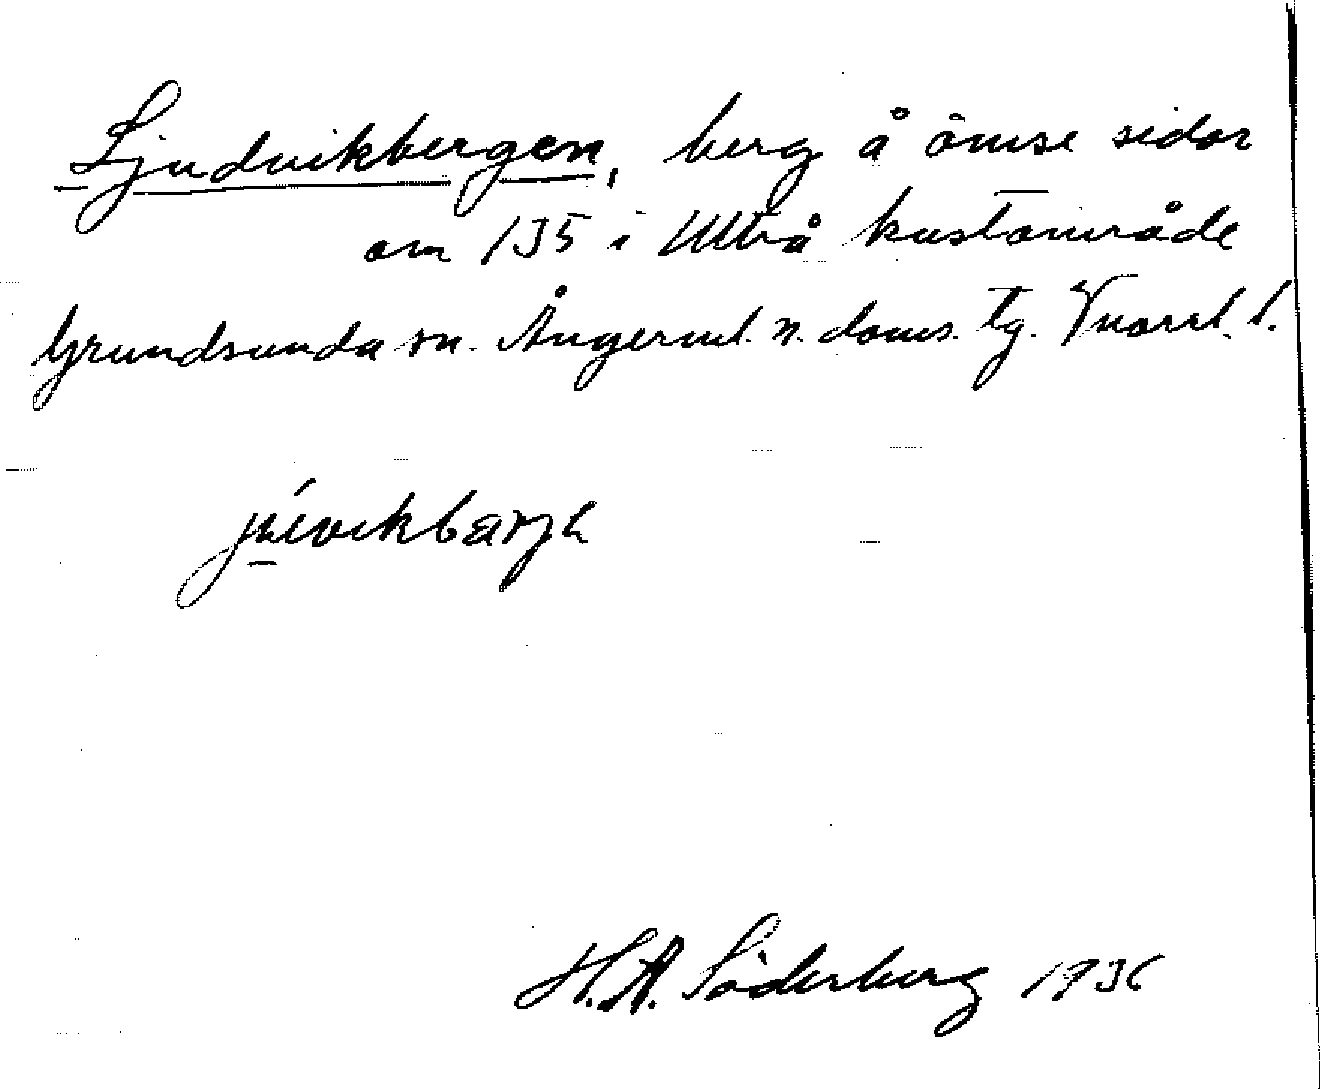 Ljudvikbergen, berg å ömse sidor
om 135 i Ultrå kustområde
Grundsunda sn. Ångerml. n. doms. tg. Vnorrl. l.
H. A. Söderberg 1936